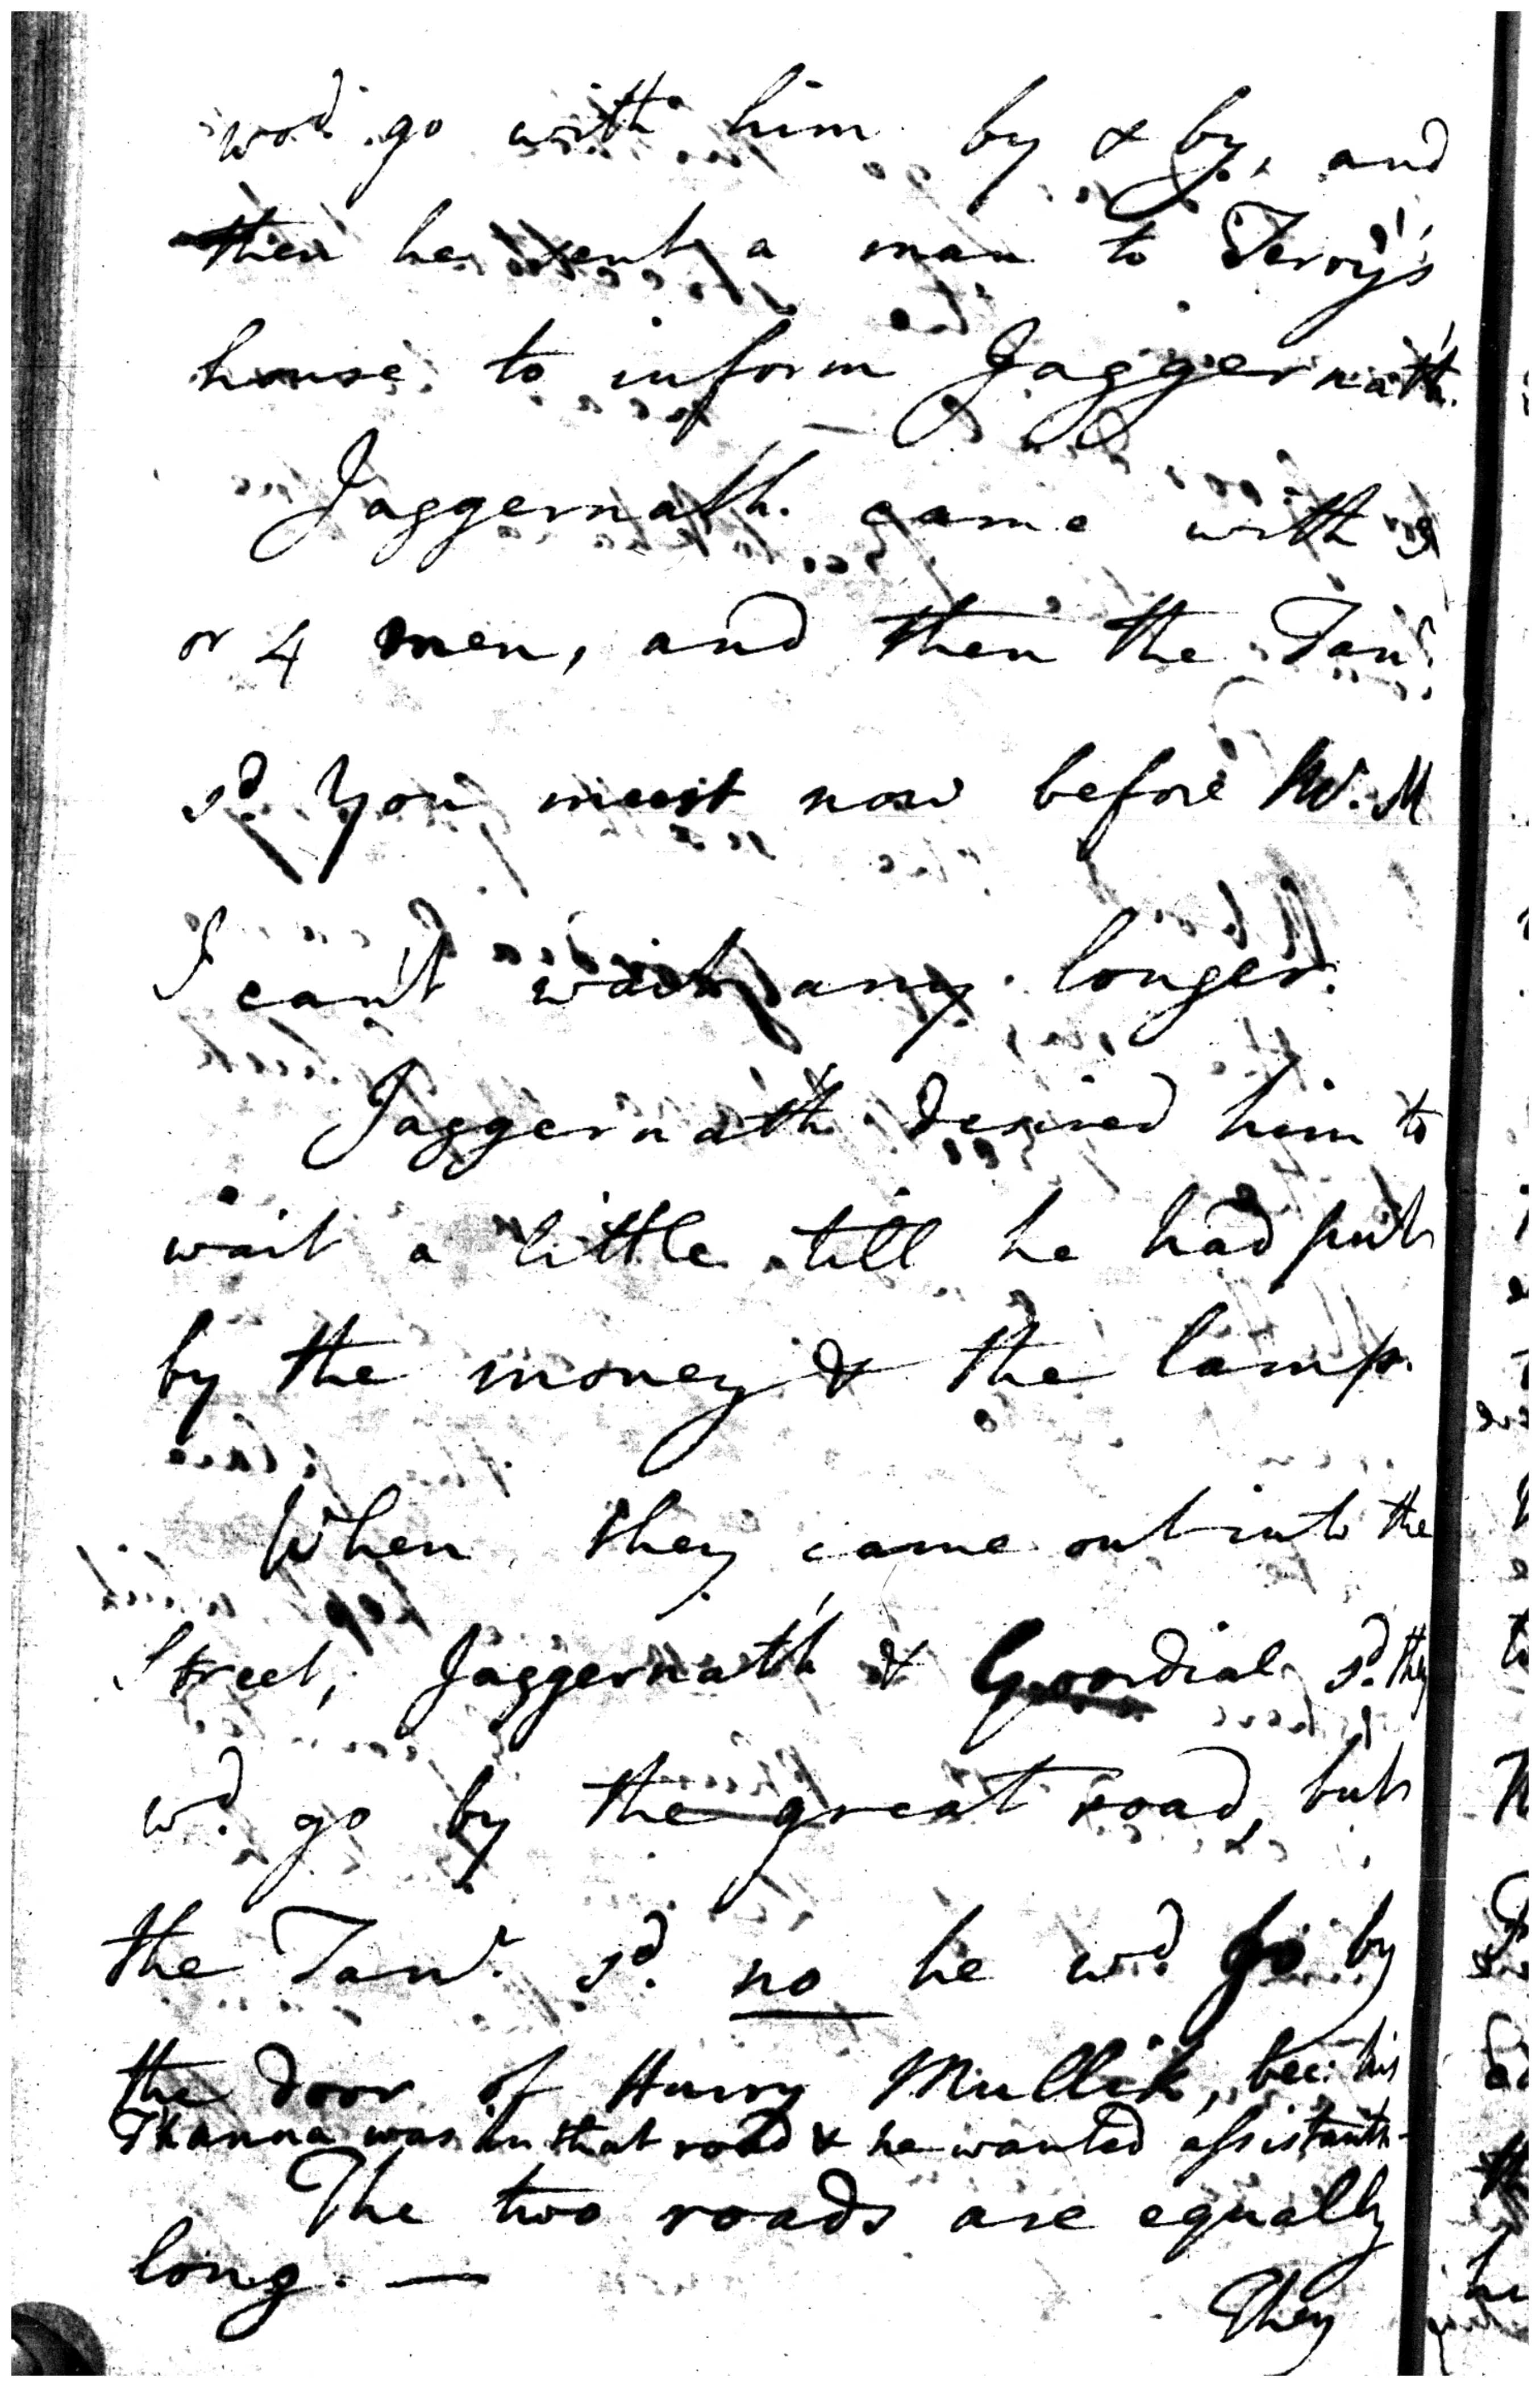 wod. go with him by & by, and
then he sent a man to Terry's
house to inform Jaggernath.
Jaggernath. came with 3
or 4 men, and then the Tanr.
sd. You must now before Mr. M
I can't wait any longer.
Jaggernath desired him to
wait a little till he had put
by the money & the lamp.
When they came out into the
Street, Jaggernath & Goordial sd. they
wd. go by the great road, but
the Tanr. sd. no he wd. go by
the door of Hurry Mullik, bec: his
Thanna was in that road & he wanted assistants-
The two roads are equally
long. —
They